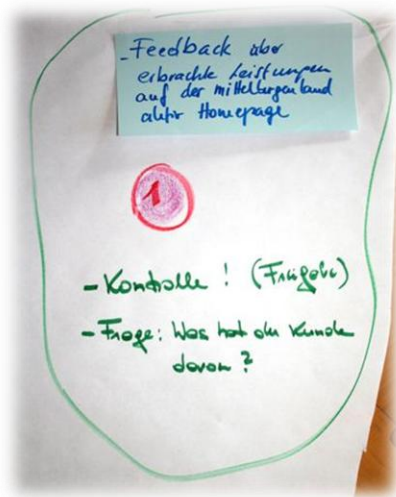 - Feedback über
erbrachte Leistungen
auf der mittelburgenland
aktiv Homepage
1
- Kontrolle ! (Freigabe)
- Frage: Was hat der Kunde
davon ?